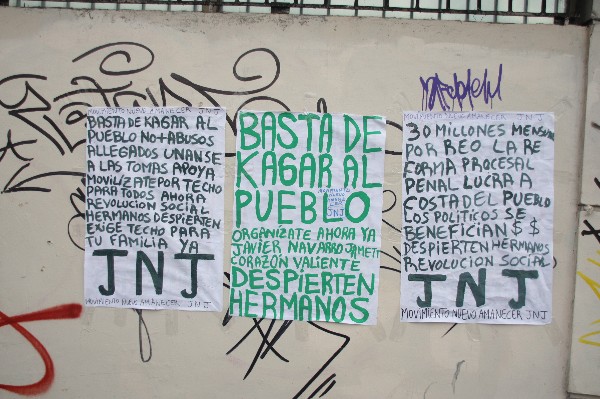 MOVIMIENTO NUEVO AMANECER JNJ
BASTA DE KAGAR AL
PUEBLO NO+ABUSOS
ALLEGADOS UNANSE
A LAS TOMAS APOYA
MOVILIZATE POR TECHO
PARA TODOS AHORA
REVOLUCION SOCIAL
HERMANOS DESPIERTEN
EXIGE TECHO PARA
TU FAMILIA YA
JNJ
MOVIMIENTO NUEVO AMANECER JNJ
BASTA DE
KAGAR AL
PUEBLO
JNJ
ORGANIZATE AHORA YA
JAVIER NAVARRO JAMETT
CORAZON VALIENTE
DESPIERTEN
HERMANOS
MOVIMIENTO NUEVO AMANECER JNJ
30 MILLONES MENSUAL
POR REO LA RE
FORMA PROCESAL
PENAL LUCRA A
COSTA DEL PUEBLO
LOS POLITICOS SE
BENEFICIAN $ $
DESPIERTEN HERMANOS
REVOLUCION SOCIAL
JNJ
MOVIMIENTO NUEVO AMANECER JNJ